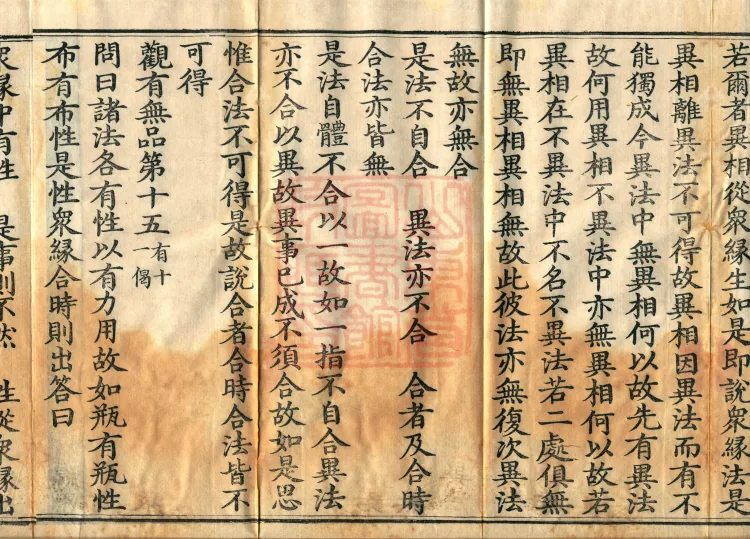 若爾者異相從衆緣生如是即說衆緣法是
異相離異法不可得故異相因異法而有不
能獨成今異法中無異相何以故先有異法
故何用異相不異法中亦無異相何以故若
異相在不異法中不名不異法若二處俱無
即無異相異相無故此彼法亦無復次異法
無故亦無合
是法不自合 異法亦不合 合者及合時
合法亦皆無
是法自體不合以一故如一指不自合異法
亦不合以異故異事已成不須合故如是思
惟合法不可得是故說合者合時合法皆不
可得
觀有無品第十五有十一偈
問曰諸法各有性以有力用故如瓶有瓶性
布有布性是性衆緣合時則出答曰
衆緣中有性 是事則不然 性從衆緣出